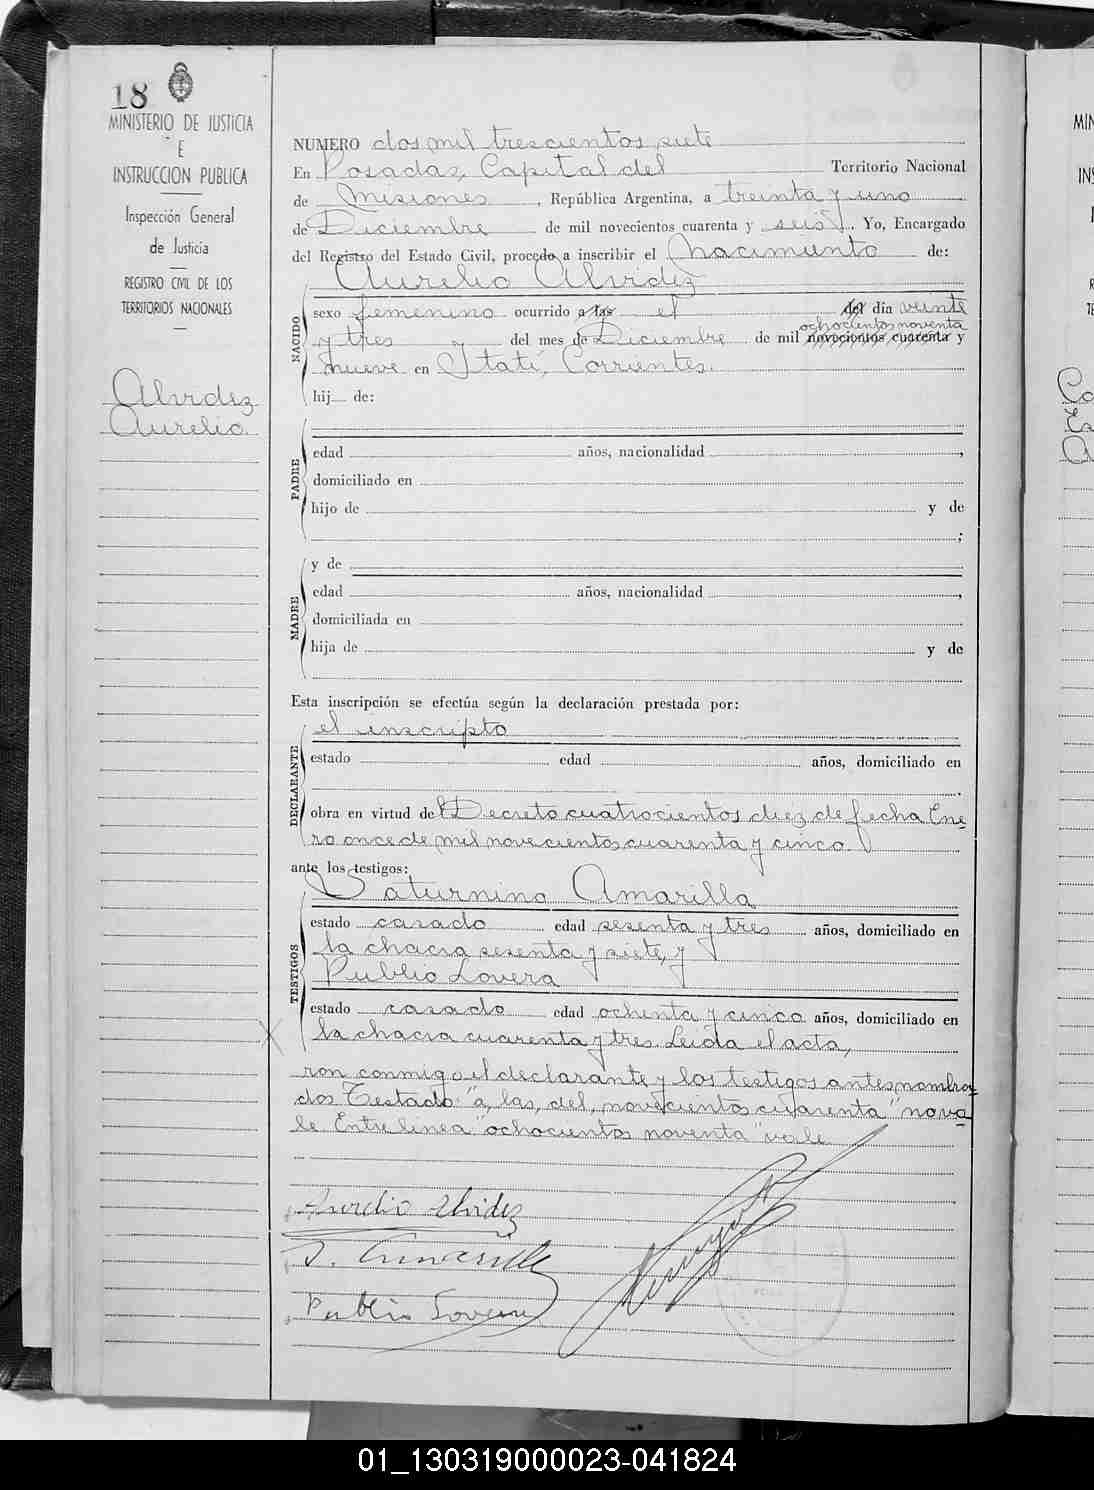 18
MINISTERIO DE JUSTICIA
E
INSTRUCCION PUBLICA
Inspección General
de Justicia
REGISTRO CIVIL DE LOS
TERRITORIOS NACIONALES
Alvidez
Aurelio
NUMERO dos mil trescientos siete
En Posadas, Capital del Territorio Nacional
de Misiones, República Argentina, a treinta y uno
de Diciembre de mil novecientos cuarenta y seis. Yo, Encargado
del Registro del Estado Civil, procedo a inscribir el Nacimiento de:
Aurelio Alvidez
NACIDO
sexo femenino ocurrido a las el del día veinte
ochocientos noventa
y tres del mes de Diciembre de mil novecientos cuarenta y
nueve en Itatí, Corrientes.
hij de:
PADRE
edad años, nacionalidad ,
domiciliado en
hijo de y de
;
MADRE
y de
edad años, nacionalidad ,
domiciliada en
hija de y de
Esta inscripción se efectúa según la declaración prestada por:
DECLARANTE
el inscripto
estado edad años, domiciliado en
.
obra en virtud del Decreto cuatrocientos diez de fecha Ene-
ro once de mil novecientos cuarenta y cinco
ante los testigos:
TESTIGOS
Saturnino Amarilla
estado casado edad sesenta y tres años, domiciliado en
la chacra sesenta y siete, y
Publio Lovera
estado casado edad ochenta y cinco años, domiciliado en
la chacra cuarenta y tres. Leída el acta,
ron conmigo el declarante y los testigos antes nombra-
dos Testado: "a, las, del, novecientos cuarenta" no va-
le. Entre linea "ochocientos noventa" vale
Aurelio Alvidez
S. Amarilla
Publio Lovera
MIN
INS
01_130319000023-041824